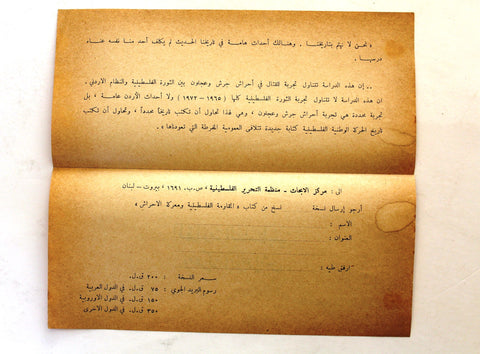 « نحن لا نهتم بتاريخنا . وهنالك أحداث هامة في تاريخنا الحديث لم يكلف أحد منا نفسه عناء
درسها .
.. إن هذه الدراسة تتناول تجربة القتال في أحراش جرش وعجلون بين الثورة الفلسطينية والنظام الاردني .
ان هذه الدراسة لا تتناول تجربة الثورة الفلسطينية كلها (١٩٦٥ - ١٩٧٣) ولا الأردن عامة ، بل
تجربة محددة هي تجربة أحراش جرش وعجلون ، وهي لهذا تحاول أن تكتب تاريخاً محدداً ، وتحاول أن تكتب
تاريخ الحركة الوطنية الفلسطينية كتابة جديدة تتلافى العمومية المفرطة التي تعودناها » .
الى : مركز الابحاث - منظمة التحرير الفلسطينية ، ص.ب. ١٦٩١ ، بيروت - لبنان
أرجو إرسال نسخة / نسخ من كتاب « المقاومة الفلسطينية ومعركة الاحراش »
الاسم :
العنوان :
ارفق طيه :
سعر النسخة : ٢٠٠ ق.ل.
رسوم البريد الجوي : ٧٥ ق.ل. في الدول العربية
١٥٠ ق.ل. في الدول الاوروبية
٣٥٠ ق.ل. في الدول الاخرى